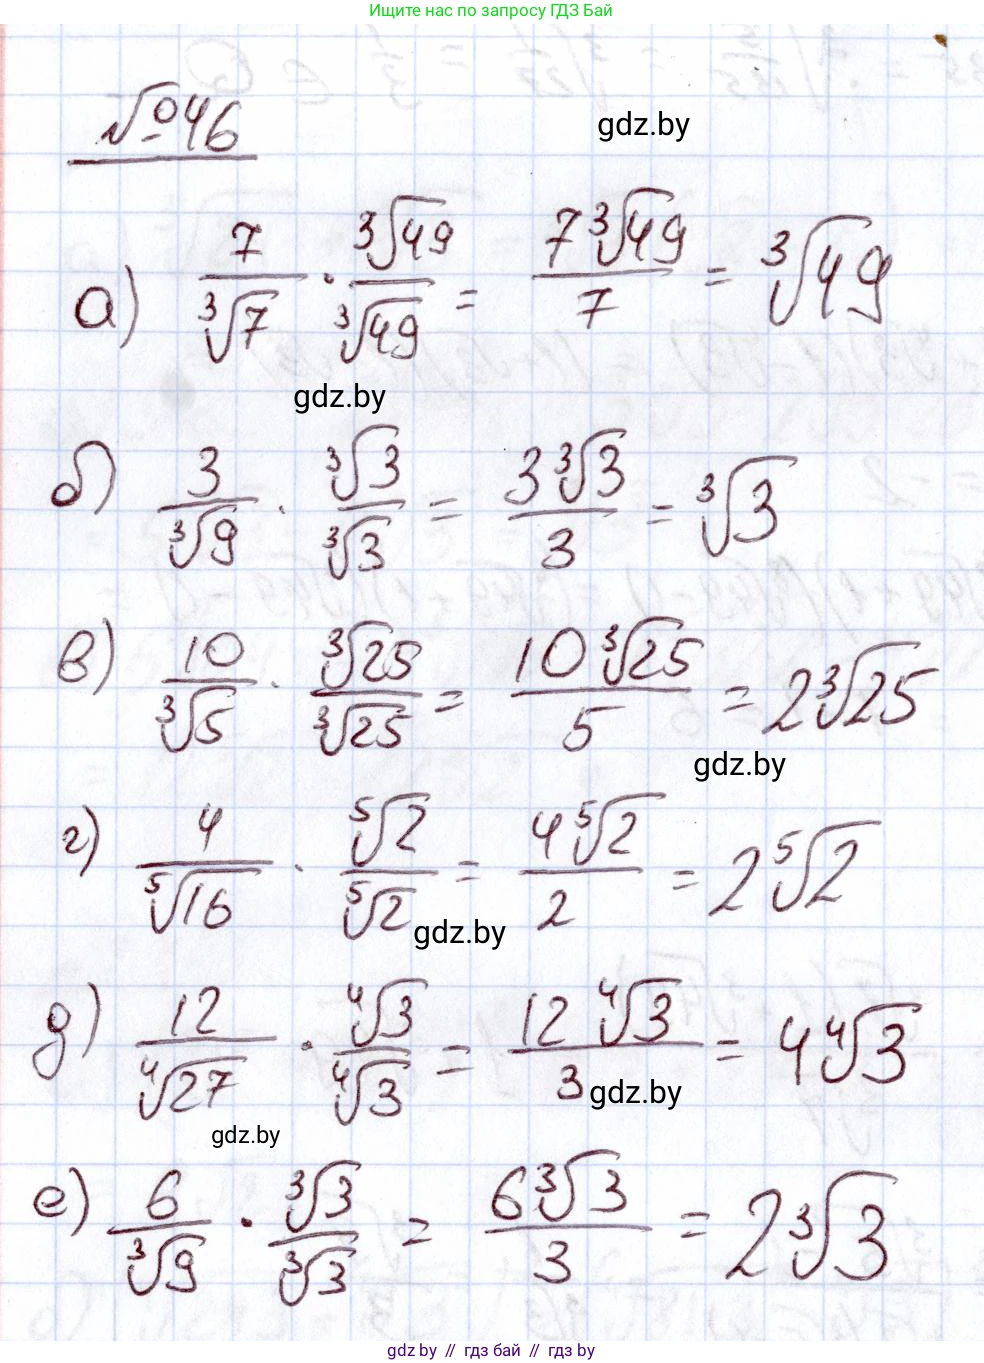 Ищите нас по запросу ГДЗ Бай
№46
gdz.by
а) 7/∛7 · ∛49/∛49 = 7∛49/7 = ∛49
gdz.by
б) 3/∛9 · ∛3/∛3 = 3∛3/3 = ∛3
в) 10/∛5 · ∛25/∛25 = 10∛25/5 = 2∛25
gdz.by
г) 4/⁵√16 · ⁵√2/⁵√2 = 4⁵√2/2 = 2⁵√2
gdz.by
д) 12/∜27 · ∜3/∜3 = 12∜3/3 = 4∜3
gdz.by
gdz.by
е) 6/∛9 · ∛3/∛3 = 6∛3/3 = 2∛3
gdz by // гдз бай // гдз by